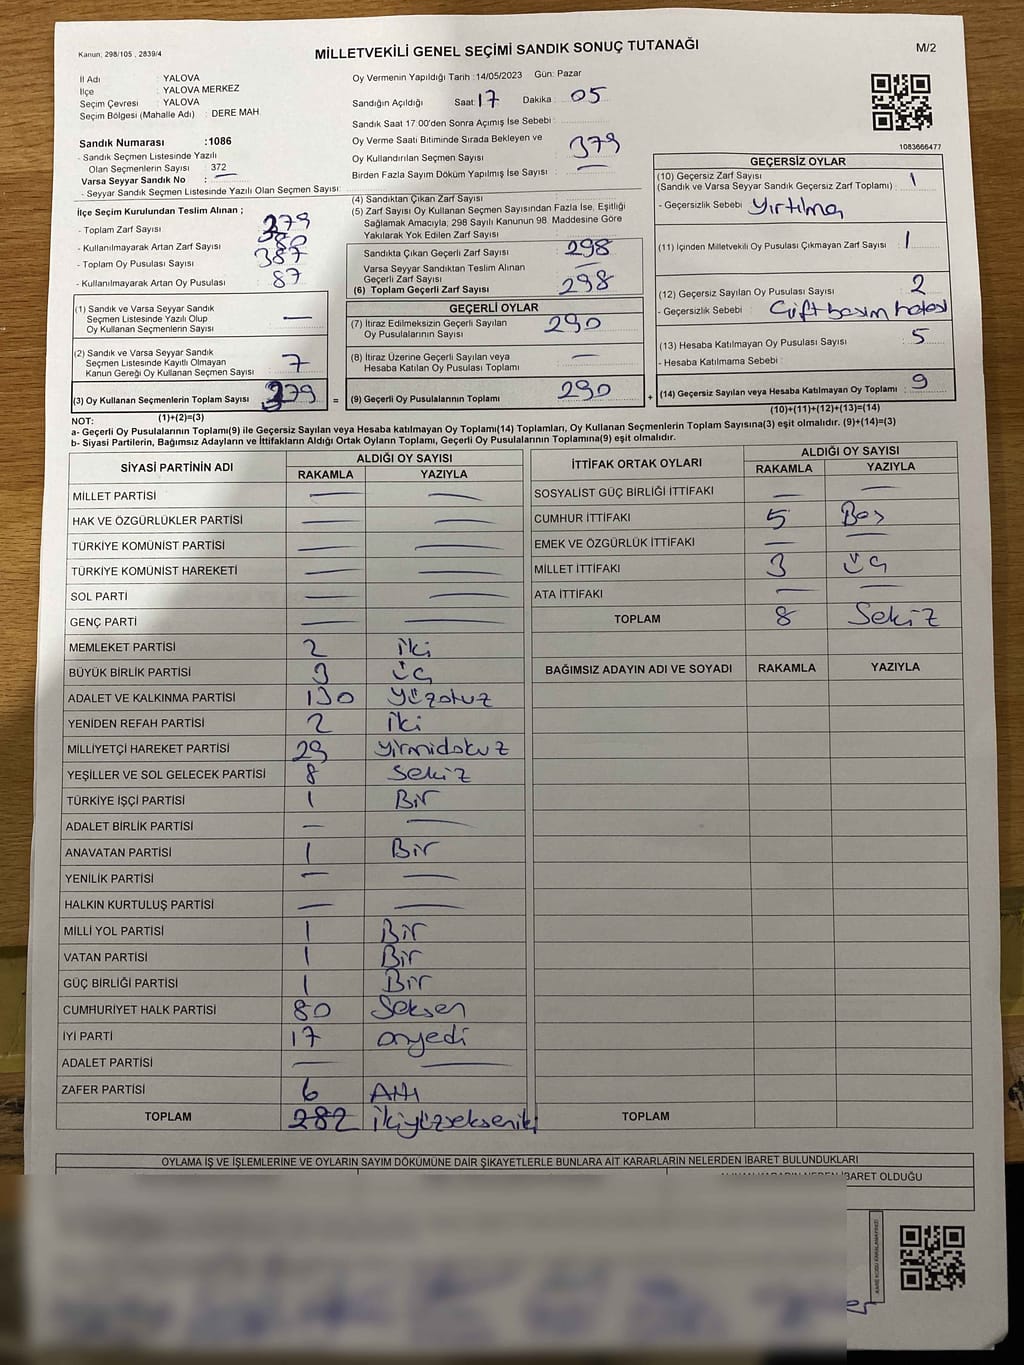 Kanun: 298/105 , 2839/4
MİLLETVEKİLİ GENEL SEÇİMİ SANDIK SONUÇ TUTANAĞI
M/2
İl Adı : YALOVA
İlçe : YALOVA MERKEZ
Seçim Çevresi : YALOVA
Seçim Bölgesi (Mahalle Adı) : DERE MAH.
Sandık Numarası :1086
- Sandık Seçmen Listesinde Yazılı
Olan Seçmenlerin Sayısı : 372
Varsa Seyyar Sandık No : —
- Seyyar Sandık Seçmen Listesinde Yazılı Olan Seçmen Sayısı:
Oy Vermenin Yapıldığı Tarih :14/05/2023 Gün: Pazar
Sandığın Açıldığı Saat: 17 Dakika : 05
Sandık Saat 17:00'den Sonra Açımış İse Sebebi :
Oy Verme Saati Bitiminde Sırada Bekleyen ve
Oy Kullandırılan Seçmen Sayısı : 379
Birden Fazla Sayım Döküm Yapılmış İse Sayısı : —
1083666477
İlçe Seçim Kurulundan Teslim Alınan ;
- Toplam Zarf Sayısı : 379
- Kullanılmayarak Artan Zarf Sayısı : 80
- Toplam Oy Pusulası Sayısı : 387
- Kullanılmayarak Artan Oy Pusulası : 87
(1) Sandık ve Varsa Seyyar Sandık
Seçmen Listesinde Yazılı Olup
Oy Kullanan Seçmenlerin Sayısı : —
(2) Sandık ve Varsa Seyyar Sandık
Seçmen Listesinde Kayıtlı Olmayan
Kanun Gereği Oy Kullanan Seçmen Sayısı : 7
(3) Oy Kullanan Seçmenlerin Toplam Sayısı : 379
(1)+(2)=(3)
(4) Sandıktan Çıkan Zarf Sayısı :
(5) Zarf Sayısı Oy Kullanan Seçmen Sayısından Fazla İse, Eşitliği
Sağlamak Amacıyla; 298 Sayılı Kanunun 98. Maddesine Göre
Yakılarak Yok Edilen Zarf Sayısı :
Sandıkta Çıkan Geçerli Zarf Sayısı : 298
Varsa Seyyar Sandıktan Teslim Alınan
Geçerli Zarf Sayısı : —
(6) Toplam Geçerli Zarf Sayısı : 298
GEÇERLİ OYLAR
(7) İtiraz Edilmeksizin Geçerli Sayılan
Oy Pusulalarının Sayısı : 290
(8) İtiraz Üzerine Geçerli Sayılan veya
Hesaba Katılan Oy Pusulası Toplamı : —
= (9) Geçerli Oy Pusulalarının Toplamı : 290
GEÇERSİZ OYLAR
(10) Geçersiz Zarf Sayısı
(Sandık ve Varsa Seyyar Sandık Geçersiz Zarf Toplamı) : 1
- Geçersizlik Sebebi : Yırtılma
(11) İçinden Milletvekili Oy Pusulası Çıkmayan Zarf Sayısı : 1
(12) Geçersiz Sayılan Oy Pusulası Sayısı : 2
- Geçersizlik Sebebi : Çift basım hatası
(13) Hesaba Katılmayan Oy Pusulası Sayısı : 5
- Hesaba Katılmama Sebebi :
+ (14) Geçersiz Sayılan veya Hesaba Katılmayan Oy Toplamı : 9
(10)+(11)+(12)+(13)=(14)
NOT:
a- Geçerli Oy Pusulalarının Toplamı(9) ile Geçersiz Sayılan veya Hesaba katılmayan Oy Toplamı(14) Toplamları, Oy Kullanan Seçmenlerin Toplam Sayısına(3) eşit olmalıdır. (9)+(14)=(3)
b- Siyasi Partilerin, Bağımsız Adayların ve İttifakların Aldığı Ortak Oyların Toplamı, Geçerli Oy Pusulalarının Toplamına(9) eşit olmalıdır.
SİYASİ PARTİNİN ADI ALDIĞI OY SAYISI
RAKAMLA YAZIYLA
MİLLET PARTİSİ — —
HAK VE ÖZGÜRLÜKLER PARTİSİ — —
TÜRKİYE KOMÜNİST PARTİSİ — —
TÜRKİYE KOMÜNİST HAREKETİ — —
SOL PARTİ — —
GENÇ PARTİ — —
MEMLEKET PARTİSİ 2 iki
BÜYÜK BİRLİK PARTİSİ 3 üç
ADALET VE KALKINMA PARTİSİ 130 yüzotuz
YENİDEN REFAH PARTİSİ 2 iki
MİLLİYETÇİ HAREKET PARTİSİ 29 yirmidokuz
YEŞİLLER VE SOL GELECEK PARTİSİ 8 sekiz
TÜRKİYE İŞÇİ PARTİSİ 1 Bir
ADALET BİRLİK PARTİSİ — —
ANAVATAN PARTİSİ 1 Bir
YENİLİK PARTİSİ — —
HALKIN KURTULUŞ PARTİSİ — —
MİLLİ YOL PARTİSİ 1 Bir
VATAN PARTİSİ 1 Bir
GÜÇ BİRLİĞİ PARTİSİ 1 Bir
CUMHURİYET HALK PARTİSİ 80 Seksen
İYİ PARTİ 17 onyedi
ADALET PARTİSİ — —
ZAFER PARTİSİ 6 Altı
TOPLAM 282 ikiyüzsekseniki
İTTİFAK ORTAK OYLARI ALDIĞI OY SAYISI
RAKAMLA YAZIYLA
SOSYALİST GÜÇ BİRLİĞİ İTTİFAKI — —
CUMHUR İTTİFAKI 5 Beş
EMEK VE ÖZGÜRLÜK İTTİFAKI — —
MİLLET İTTİFAKI 3 üç
ATA İTTİFAKI — —
TOPLAM 8 Sekiz
BAĞIMSIZ ADAYIN ADI VE SOYADI RAKAMLA YAZIYLA
TOPLAM
OYLAMA İŞ VE İŞLEMLERİNE VE OYLARIN SAYIM DÖKÜMÜNE DAİR ŞİKAYETLERLE BUNLARA AİT KARARLARIN NELERDEN İBARET BULUNDUKLARI
İBARET OLDUĞU